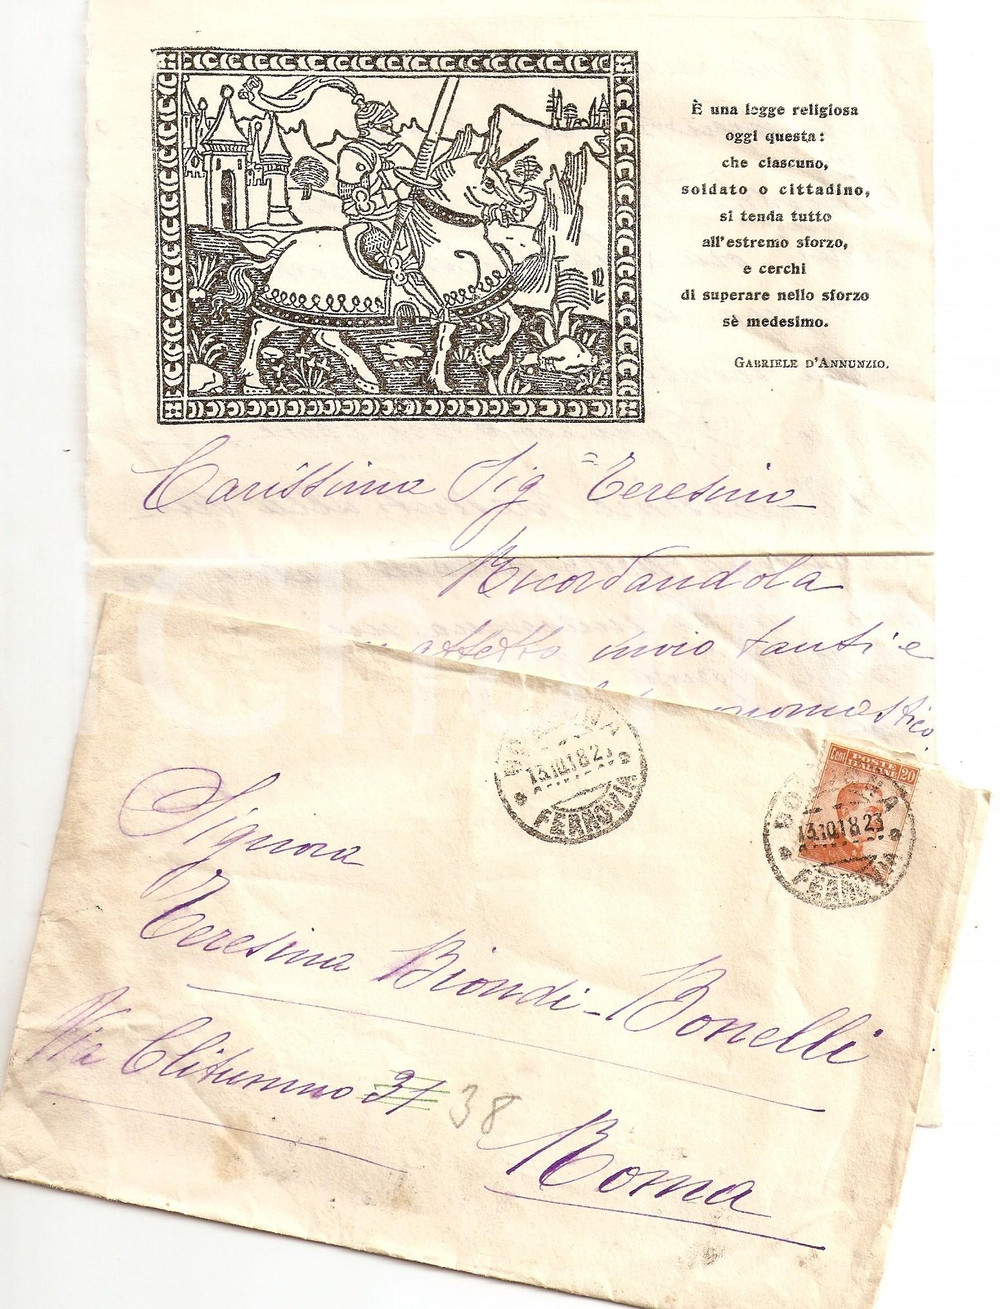 È una legge religiosa
oggi questa:
che ciascuno,
soldato o cittadino,
si tenda tutto
all'estremo sforzo,
e cerchi
di superare nello sforzo
sè medesimo.
GABRIELE D'ANNUNZIO.
Carissima Sig = Teresina
Ricordandola
affetto invio tanti e
onomastico.
13.10.18.23
FERROVIA
Cent POSTE ITALIANE 20
13.10.18.23
FERROVIA
Signora
Teresina Biondi-Bonelli
Via Clitumno 37 38
Roma